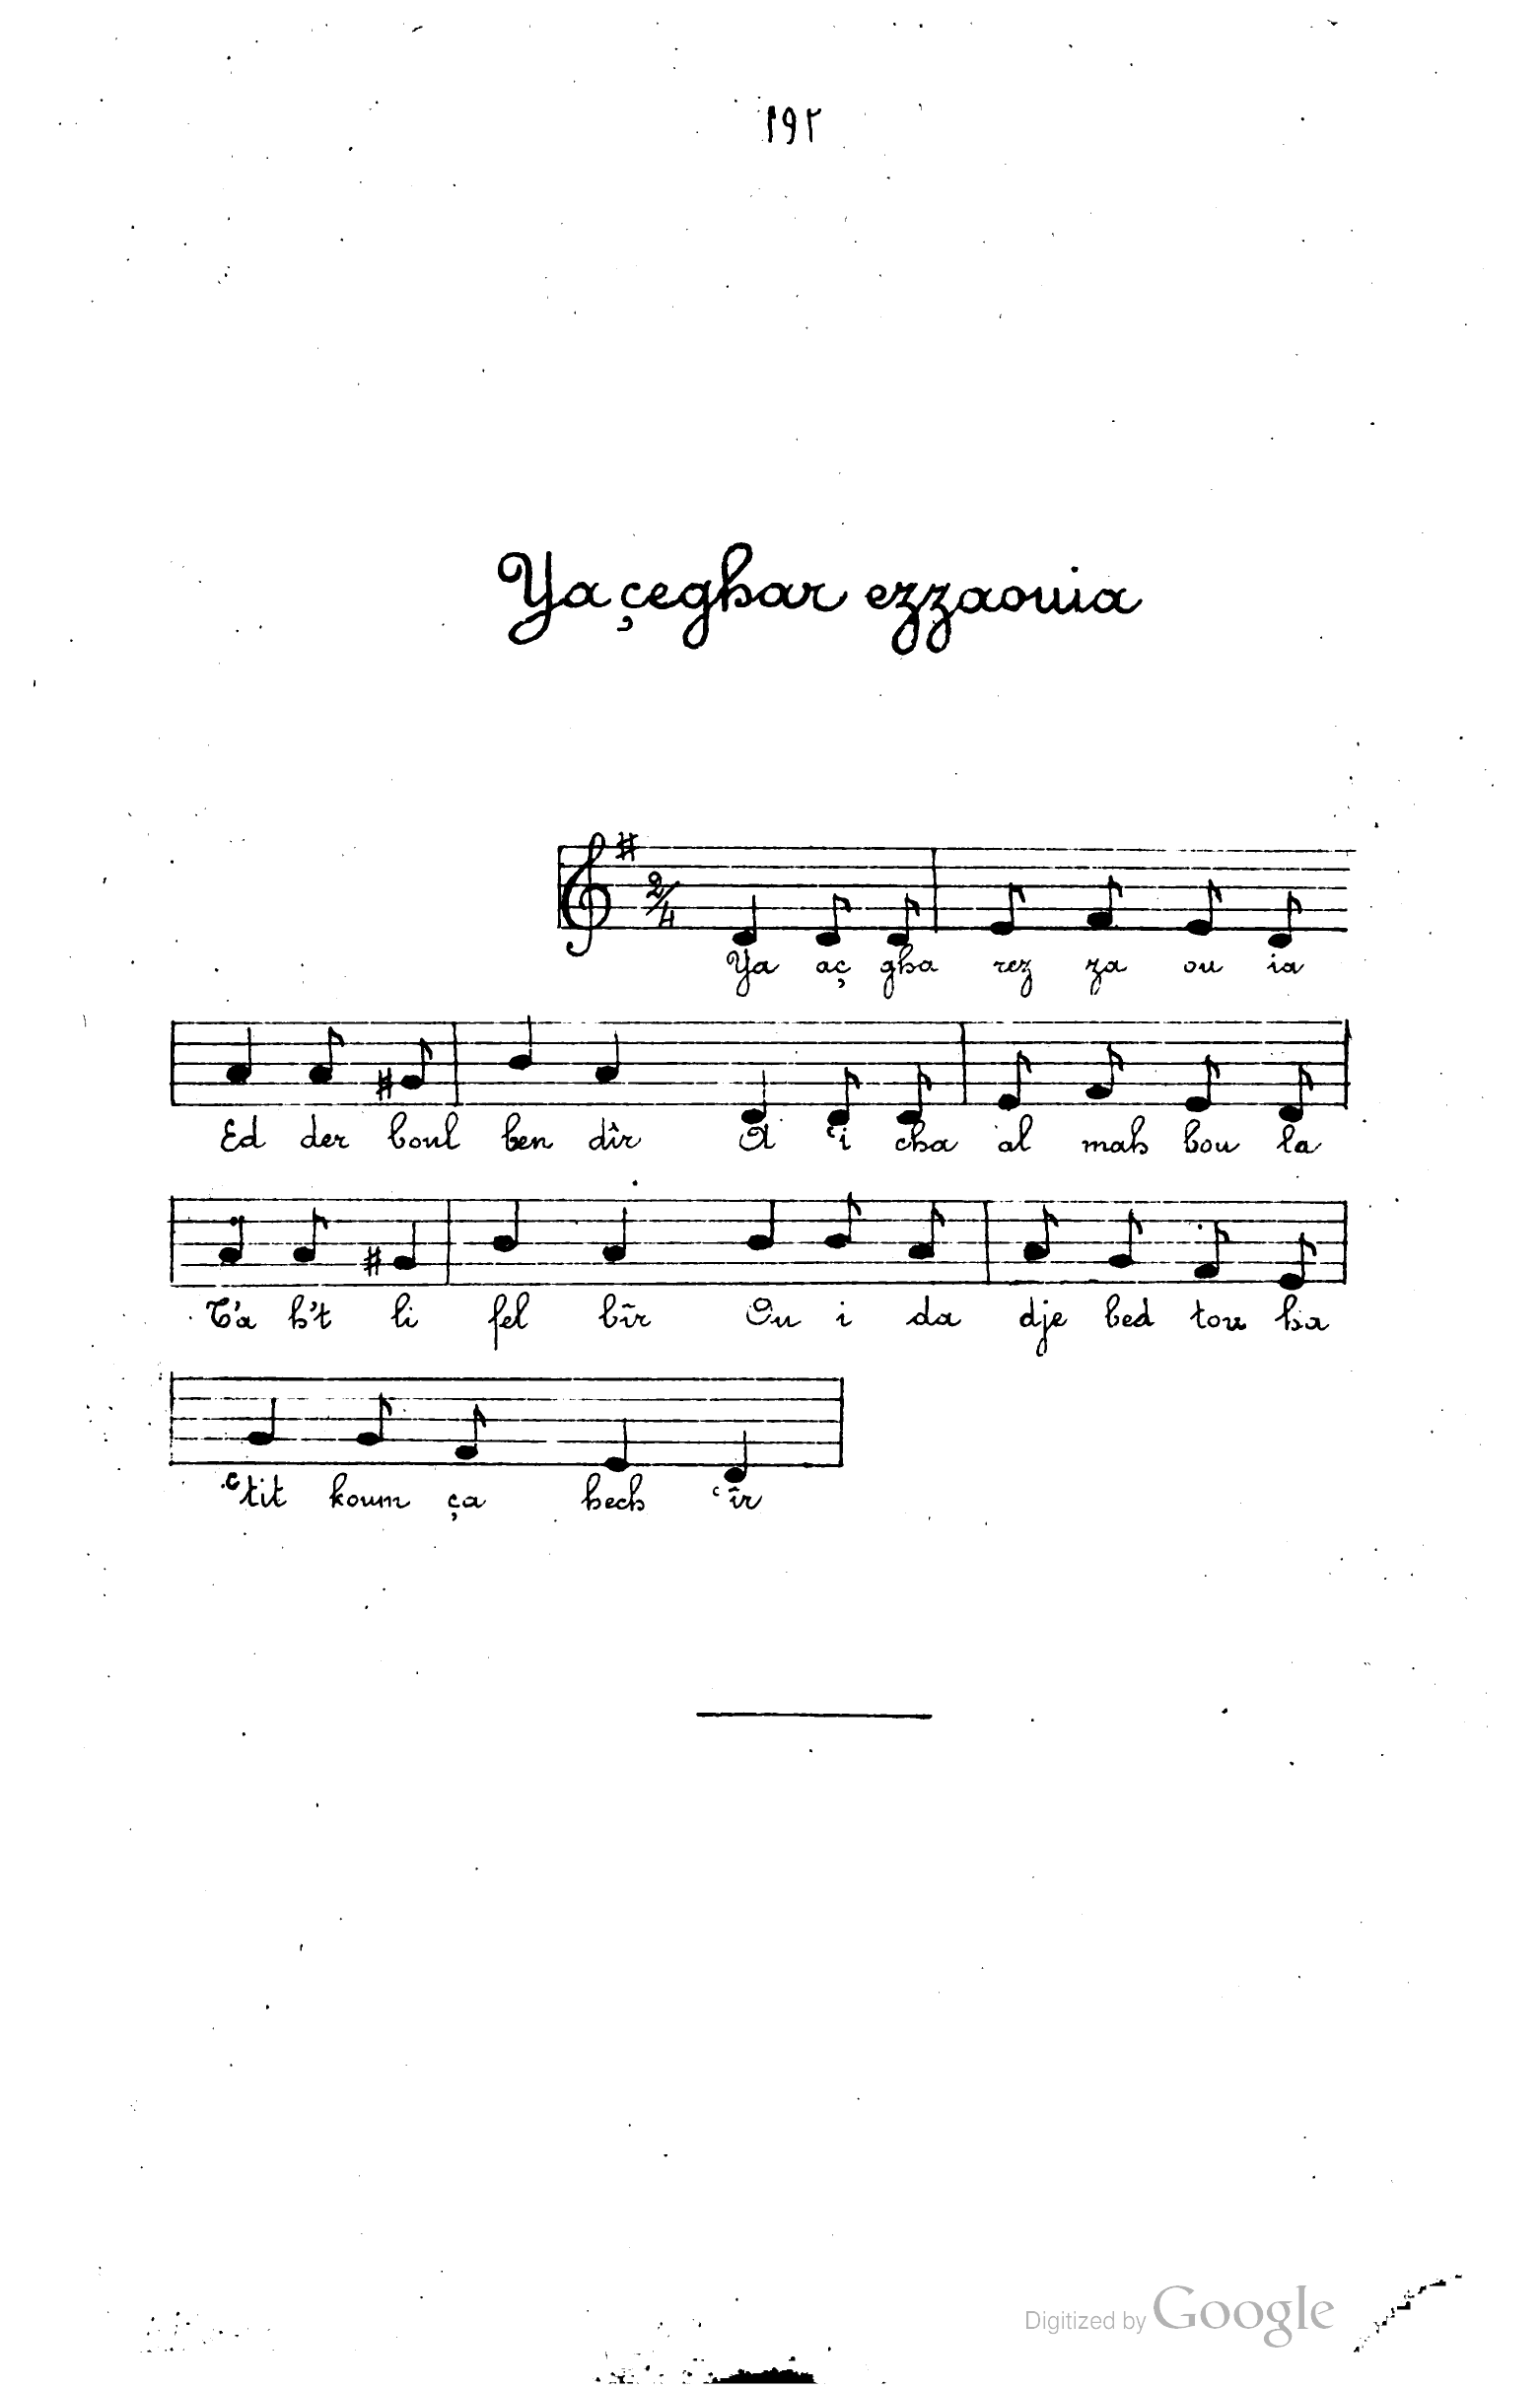 ١٩٢
Ya çeghar ezzaouia
2/4
Ya aç gha rez za ou ia
Ed der boul ben dîr A ‘i cha al mah bou la
T'a h't li fel bîr Ou i da dje bed tou ha
‘tit koum ça hech ‘îr
Digitized by Google